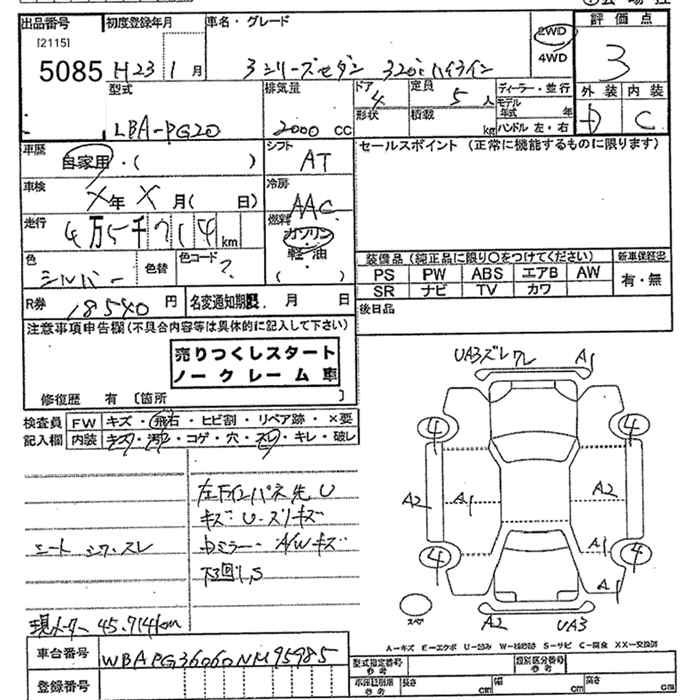 出品番号 初度登録年月 車名・グレード 評価点
[2115]
5085 H23 1月 3シリーズセダン 320i ハイライン 2WD 4WD 3
型式 排気量 ドア 定員 ディーラー・並行 外装 内装
LBA-PG20 2000 cc 4 5人 モデル年式 年 D C
形状 積載 kg ハンドル 左・右
車歴 自家用・( ) シフト AT セールスポイント (正常に機能するものに限ります)
車検 X年X月( 日) 冷房 AAC
走行 4万5千714km 燃料 ガソリン・軽油 ( )
色 シルバー 色替 色コード ? 装備品 (純正品に限り○をつけてください) 新車保証書
PS PW ABS エアB AW 有・無
SR ナビ TV カワ
R券 18540円 名変通知期限. 月 日 後日品
注意事項申告欄 (不具合内容等は具体的に記入して下さい)
売りつくしスタート
ノークレーム車
修復歴 有 [箇所 ]
検査員 FW キズ・飛石・ヒビ割・リペア跡・×要
記入欄 内装 キズ・汚れ・コゲ・穴・スレ・キレ・破レ
UA3ズレワレ A1
4 4
左Fインパネ先 U
キズ U・スリキズ
シート シワ・スレ
ミラー・A/Wキズ
下回りS
A2 A1 A2
A1
4 4
A1
スペア
A2 UA3
現メーター 45.714km
A-キズ E-エクボ U-凹み S-サビ C-腐食 XX-交換済
車台番号 WBAPG36060NM95985
型式指定番号 参考 類別区分番号 参考
登録番号
参考 長さ cm 幅 cm 高さ cm